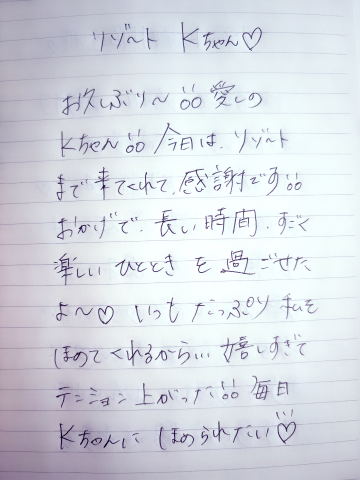 リゾート Kちゃん♡
お久しぶり〜!! 愛しの
Kちゃん!! 今日は、リゾート
まで来てくれて、感謝です!!
おかげで、長い時間、すごく
楽しいひとときを過ごせた
よ〜♡ いつもたっぷり私を
ほめてくれるから… 嬉しすぎて
テンション上がった!! 毎日
Kちゃんに ほめられたい♡